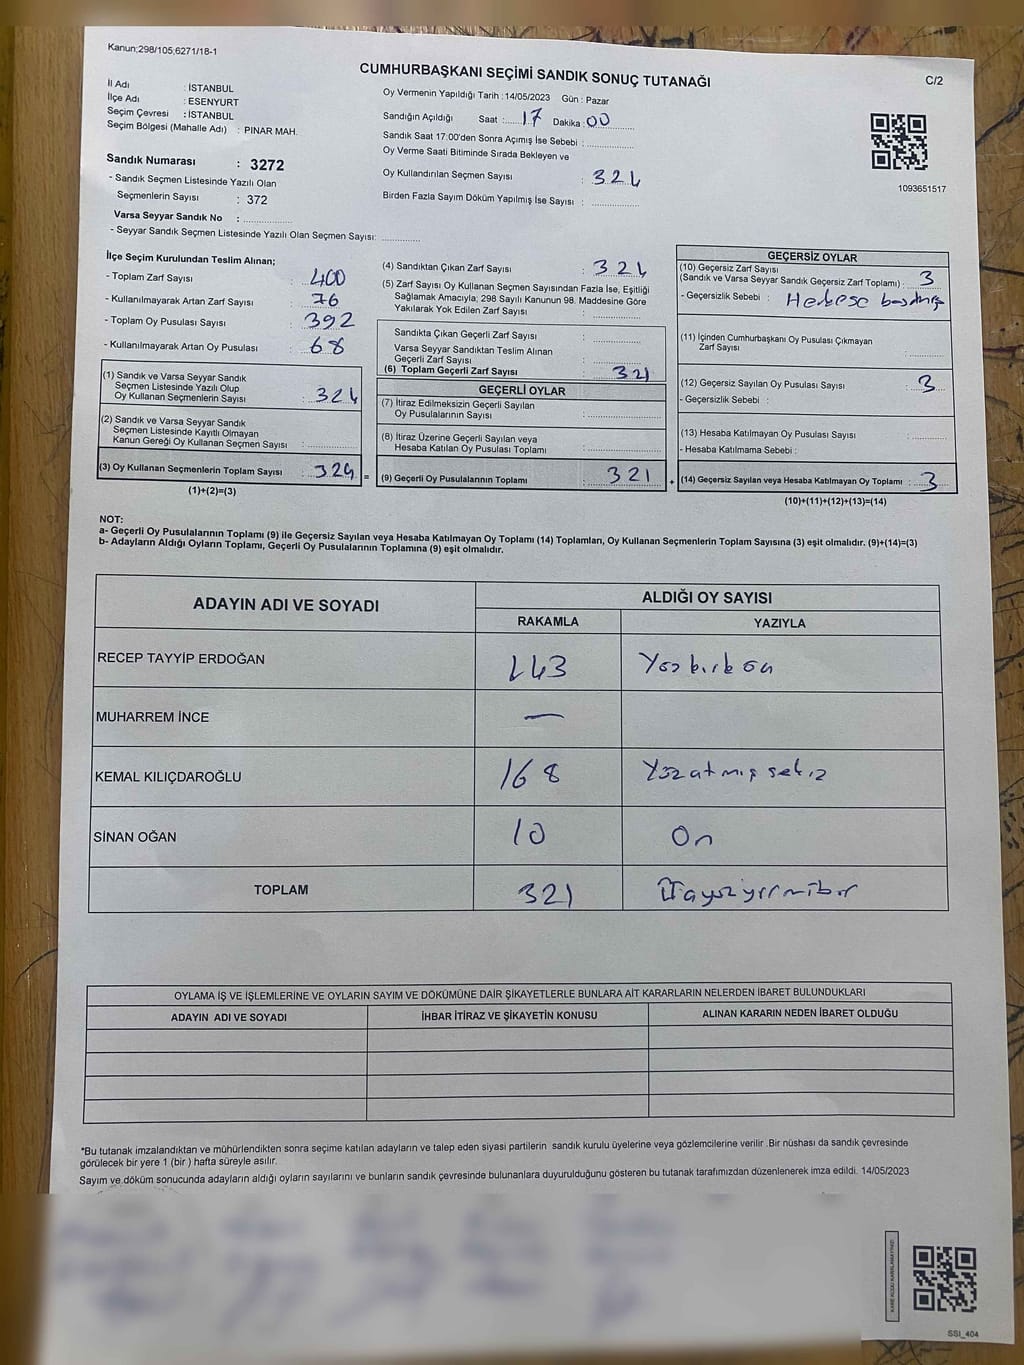 Kanun:298/105,6271/18-1
CUMHURBAŞKANI SEÇİMİ SANDIK SONUÇ TUTANAĞI
C/2
İl Adı : İSTANBUL
İlçe Adı : ESENYURT
Seçim Çevresi : İSTANBUL
Seçim Bölgesi (Mahalle Adı) : PINAR MAH.
Oy Vermenin Yapıldığı Tarih : 14/05/2023 Gün : Pazar
Sandığın Açıldığı Saat : 17 Dakika : 00
Sandık Saat 17:00'den Sonra Açımış İse Sebebi :
Oy Verme Saati Bitiminde Sırada Bekleyen ve
Oy Kullandırılan Seçmen Sayısı : 324
Birden Fazla Sayım Döküm Yapılmış İse Sayısı :
1093651517
Sandık Numarası : 3272
- Sandık Seçmen Listesinde Yazılı Olan
Seçmenlerin Sayısı : 372
Varsa Seyyar Sandık No :
- Seyyar Sandık Seçmen Listesinde Yazılı Olan Seçmen Sayısı:
İlçe Seçim Kurulundan Teslim Alınan;
- Toplam Zarf Sayısı : 400
- Kullanılmayarak Artan Zarf Sayısı : 76
- Toplam Oy Pusulası Sayısı : 392
- Kullanılmayarak Artan Oy Pusulası : 68
(1) Sandık ve Varsa Seyyar Sandık
Seçmen Listesinde Yazılı Olup
Oy Kullanan Seçmenlerin Sayısı : 324
(2) Sandık ve Varsa Seyyar Sandık
Seçmen Listesinde Kayıtlı Olmayan
Kanun Gereği Oy Kullanan Seçmen Sayısı :
(3) Oy Kullanan Seçmenlerin Toplam Sayısı : 324 =
(1)+(2)=(3)
(4) Sandıktan Çıkan Zarf Sayısı : 324
(5) Zarf Sayısı Oy Kullanan Seçmen Sayısından Fazla İse, Eşitliği
Sağlamak Amacıyla; 298 Sayılı Kanunun 98. Maddesine Göre
Yakılarak Yok Edilen Zarf Sayısı :
Sandıkta Çıkan Geçerli Zarf Sayısı :
Varsa Seyyar Sandıktan Teslim Alınan
Geçerli Zarf Sayısı :
(6) Toplam Geçerli Zarf Sayısı : 321
GEÇERLİ OYLAR
(7) İtiraz Edilmeksizin Geçerli Sayılan
Oy Pusulalarının Sayısı :
(8) İtiraz Üzerine Geçerli Sayılan veya
Hesaba Katılan Oy Pusulası Toplamı :
(9) Geçerli Oy Pusulalarının Toplamı : 321 +
GEÇERSİZ OYLAR
(10) Geçersiz Zarf Sayısı
(Sandık ve Varsa Seyyar Sandık Geçersiz Zarf Toplamı) : 3
- Geçersizlik Sebebi :
(11) İçinden Cumhurbaşkanı Oy Pusulası Çıkmayan
Zarf Sayısı :
(12) Geçersiz Sayılan Oy Pusulası Sayısı : 3
- Geçersizlik Sebebi :
(13) Hesaba Katılmayan Oy Pusulası Sayısı :
- Hesaba Katılmama Sebebi :
(14) Geçersiz Sayılan veya Hesaba Katılmayan Oy Toplamı : 3
(10)+(11)+(12)+(13)=(14)
NOT:
a- Geçerli Oy Pusulalarının Toplamı (9) ile Geçersiz Sayılan veya Hesaba Katılmayan Oy Toplamı (14) Toplamları, Oy Kullanan Seçmenlerin Toplam Sayısına (3) eşit olmalıdır. (9)+(14)=(3)
b- Adayların Aldığı Oyların Toplamı, Geçerli Oy Pusulalarının Toplamına (9) eşit olmalıdır.
ADAYIN ADI VE SOYADI ALDIĞI OY SAYISI
RAKAMLA YAZIYLA
RECEP TAYYİP ERDOĞAN 143
MUHARREM İNCE —
KEMAL KILIÇDAROĞLU 168 Yüzatmışsekiz
SİNAN OĞAN 10 On
TOPLAM 321 Üçyüzyirmibir
OYLAMA İŞ VE İŞLEMLERİNE VE OYLARIN SAYIM VE DÖKÜMÜNE DAİR ŞİKAYETLERLE BUNLARA AİT KARARLARIN NELERDEN İBARET BULUNDUKLARI
ADAYIN ADI VE SOYADI İHBAR İTİRAZ VE ŞİKAYETİN KONUSU ALINAN KARARIN NEDEN İBARET OLDUĞU
*Bu tutanak imzalandıktan ve mühürlendikten sonra seçime katılan adayların ve talep eden siyasi partilerin sandık kurulu üyelerine veya gözlemcilerine verilir .Bir nüshası da sandık çevresinde
görülecek bir yere 1 (bir ) hafta süreyle asılır.
Sayım ve döküm sonucunda adayların aldığı oyların sayılarını ve bunların sandık çevresinde bulunanlara duyurulduğunu gösteren bu tutanak tarafımızdan düzenlenerek imza edildi. 14/05/2023
SSI_404